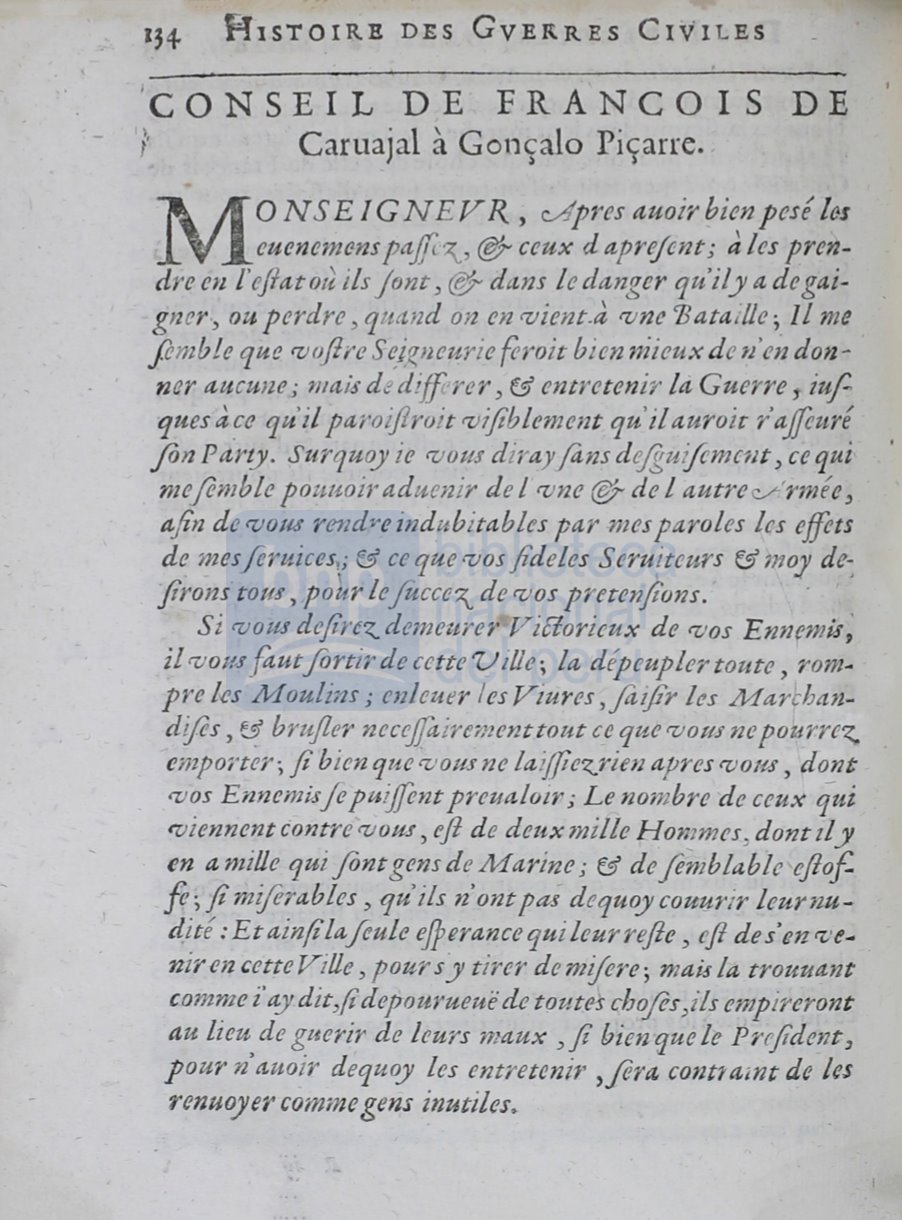 134 HISTOIRE DES GVERRES CIVILES
CONSEIL DE FRANCOIS DE
Caruajal à Gonçalo Piçarre.
MONSEIGNEVR, Apres auoir bien pesé les
euenemens passez, & ceux d apresent; à les pren-
dre en l'estat où ils sont, & dans le danger qu'il y a de gai-
gner, ou perdre, quand on en vient à vne Bataille; Il me
semble que vostre Seigneurie feroit bien mieux de n'en don-
ner aucune; mais de differer, & entretenir la Guerre, iuſ-
ques à ce qu'il paroistroit visiblement qu'il auroit r'asseuré
son Party. Surquoy ie vous diray sans desguisement, ce qui
me semble pouuoir aduenir de l vne & de l autre Armée,
afin de vous rendre indubitables par mes paroles les effets
de mes seruices; & ce que vos fideles Seruiteurs & moy de-
sirons tous, pour le succez de vos pretensions.
Si vous desirez demeurer Victorieux de vos Ennemis,
il vous faut sortir de cette Ville; la dépeupler toute, rom-
pre les Moulins; enleuer les Viures, saisir les Marchan-
dises, & brusler necessairement tout ce que vous ne pourrez
emporter; si bien que vous ne laissiez rien apres vous, dont
vos Ennemis se puissent preualoir; Le nombre de ceux qui
viennent contre vous, est de deux mille Hommes, dont il y
en a mille qui sont gens de Marine; & de semblable estof-
fe; si miserables, qu'ils n'ont pas dequoy couurir leur nu-
dité: Et ainsi la seule esperance qui leur reste, est de s'en ve-
nir en cette Ville, pour s'y tirer de misere; mais la trouuant
comme i'ay dit, si depourueuë de toutes choses, ils empireront
au lieu de guerir de leurs maux, si bien que le President,
pour n'auoir dequoy les entretenir, sera contraint de les
renuoyer comme gens inutiles.
bnp
biblioteca
nacional
del perú